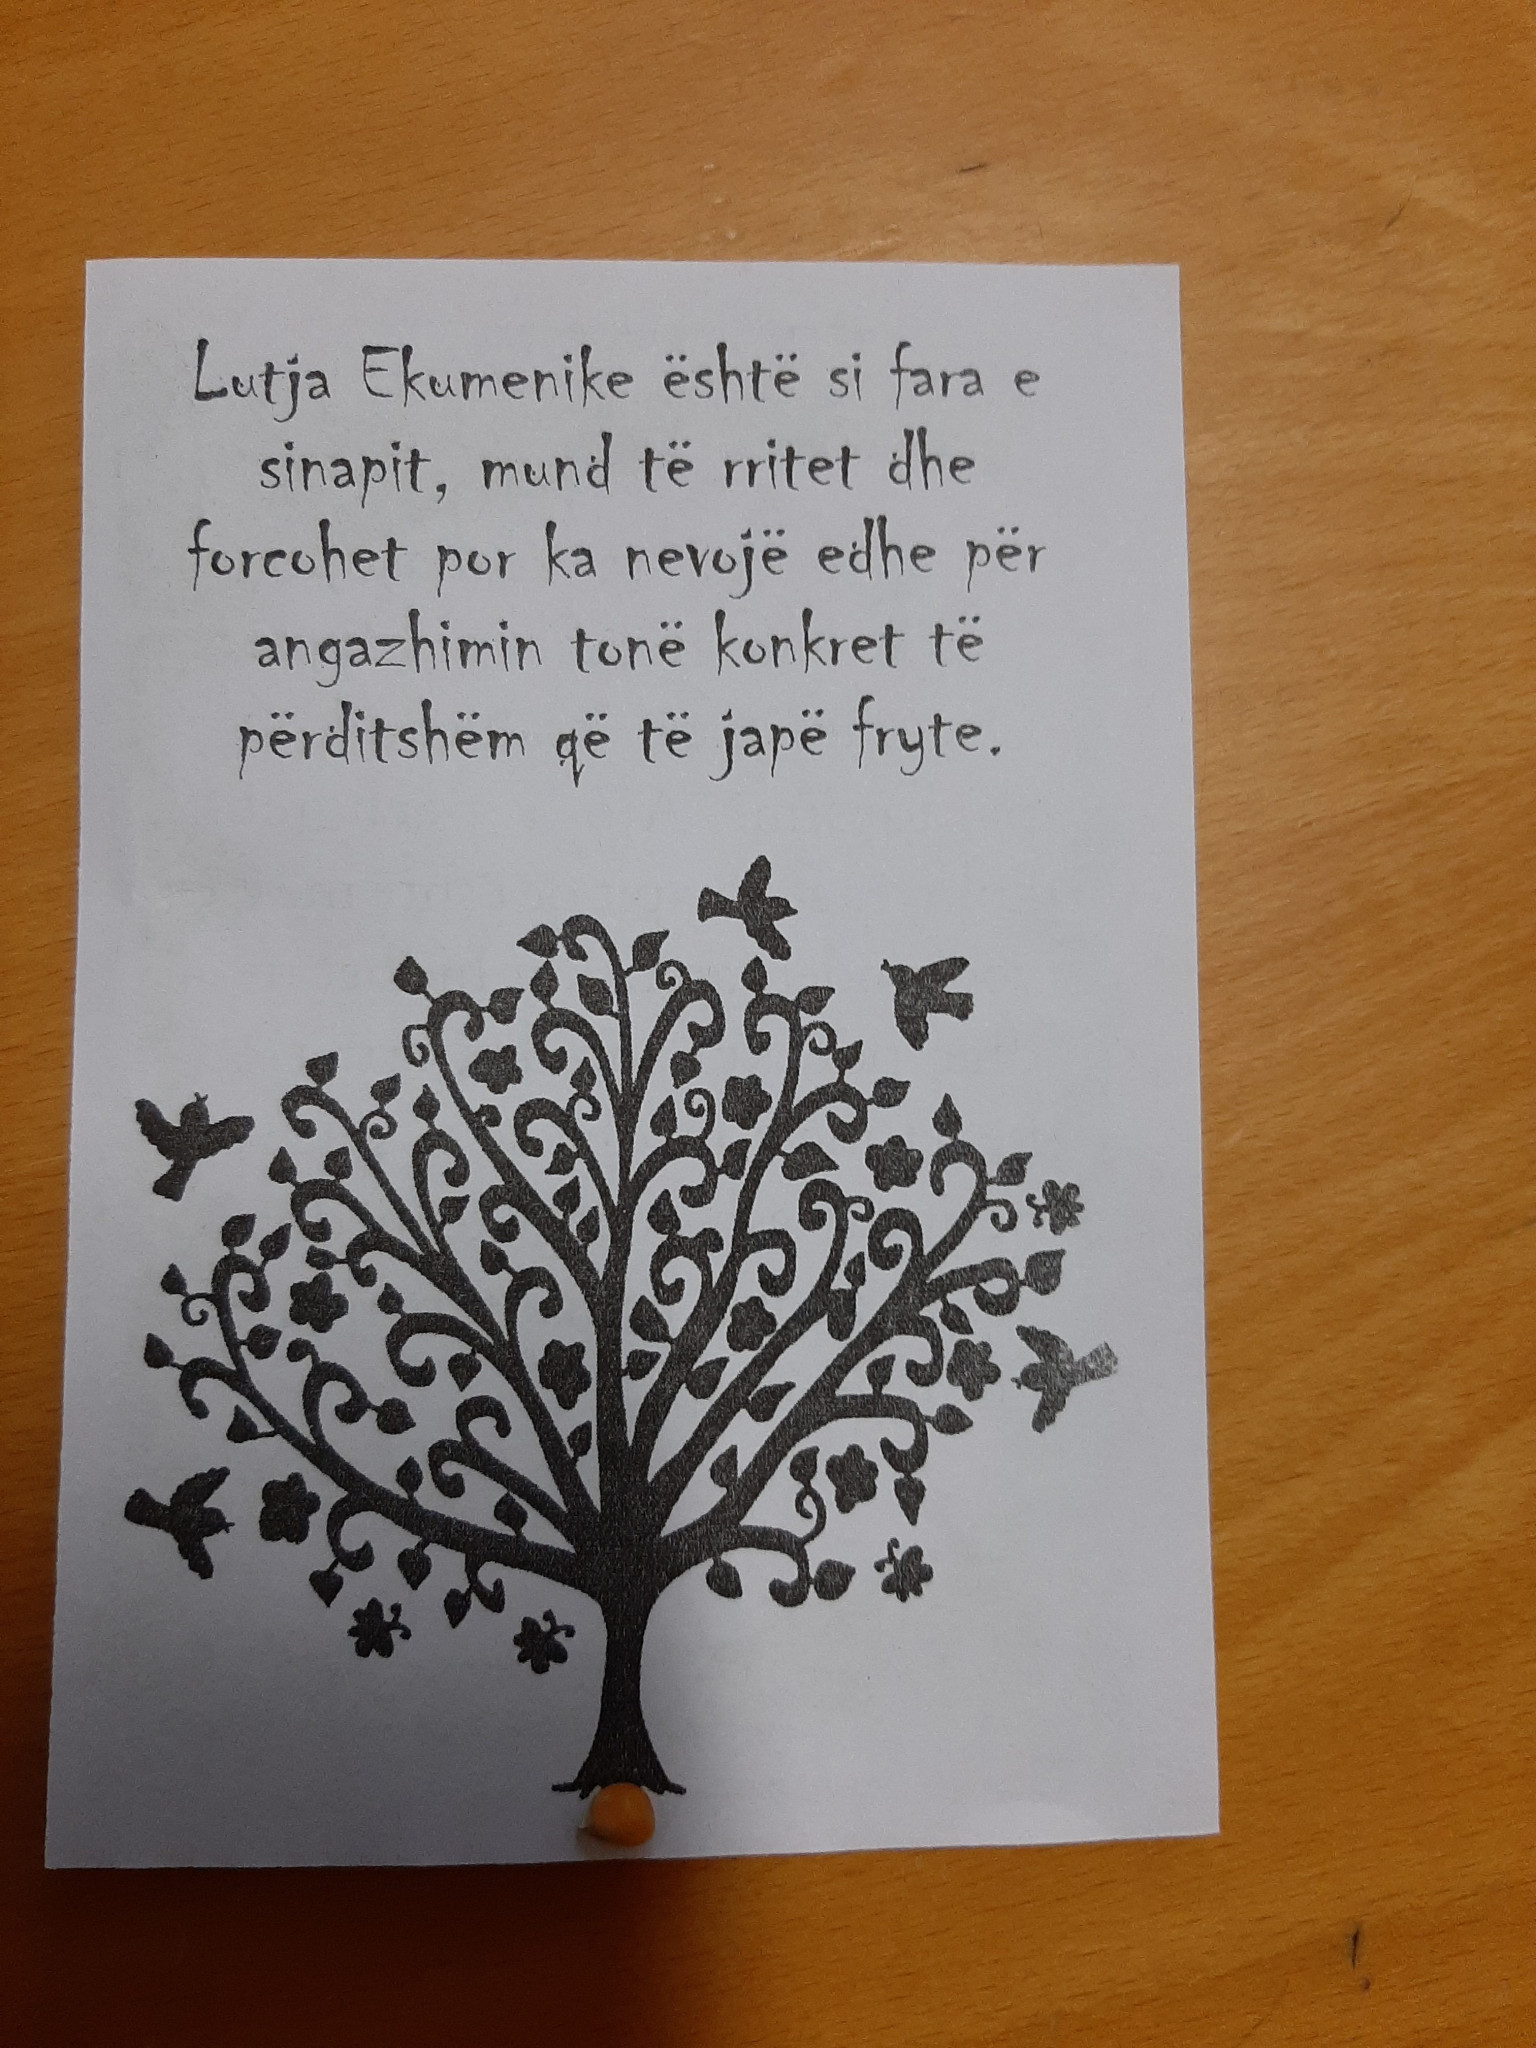 Lutja Ekumenike është si fara e
sinapit, mund të rritet dhe
forcohet por ka nevojë edhe për
angazhimin tonë konkret të
përditshëm që të japë fryte.